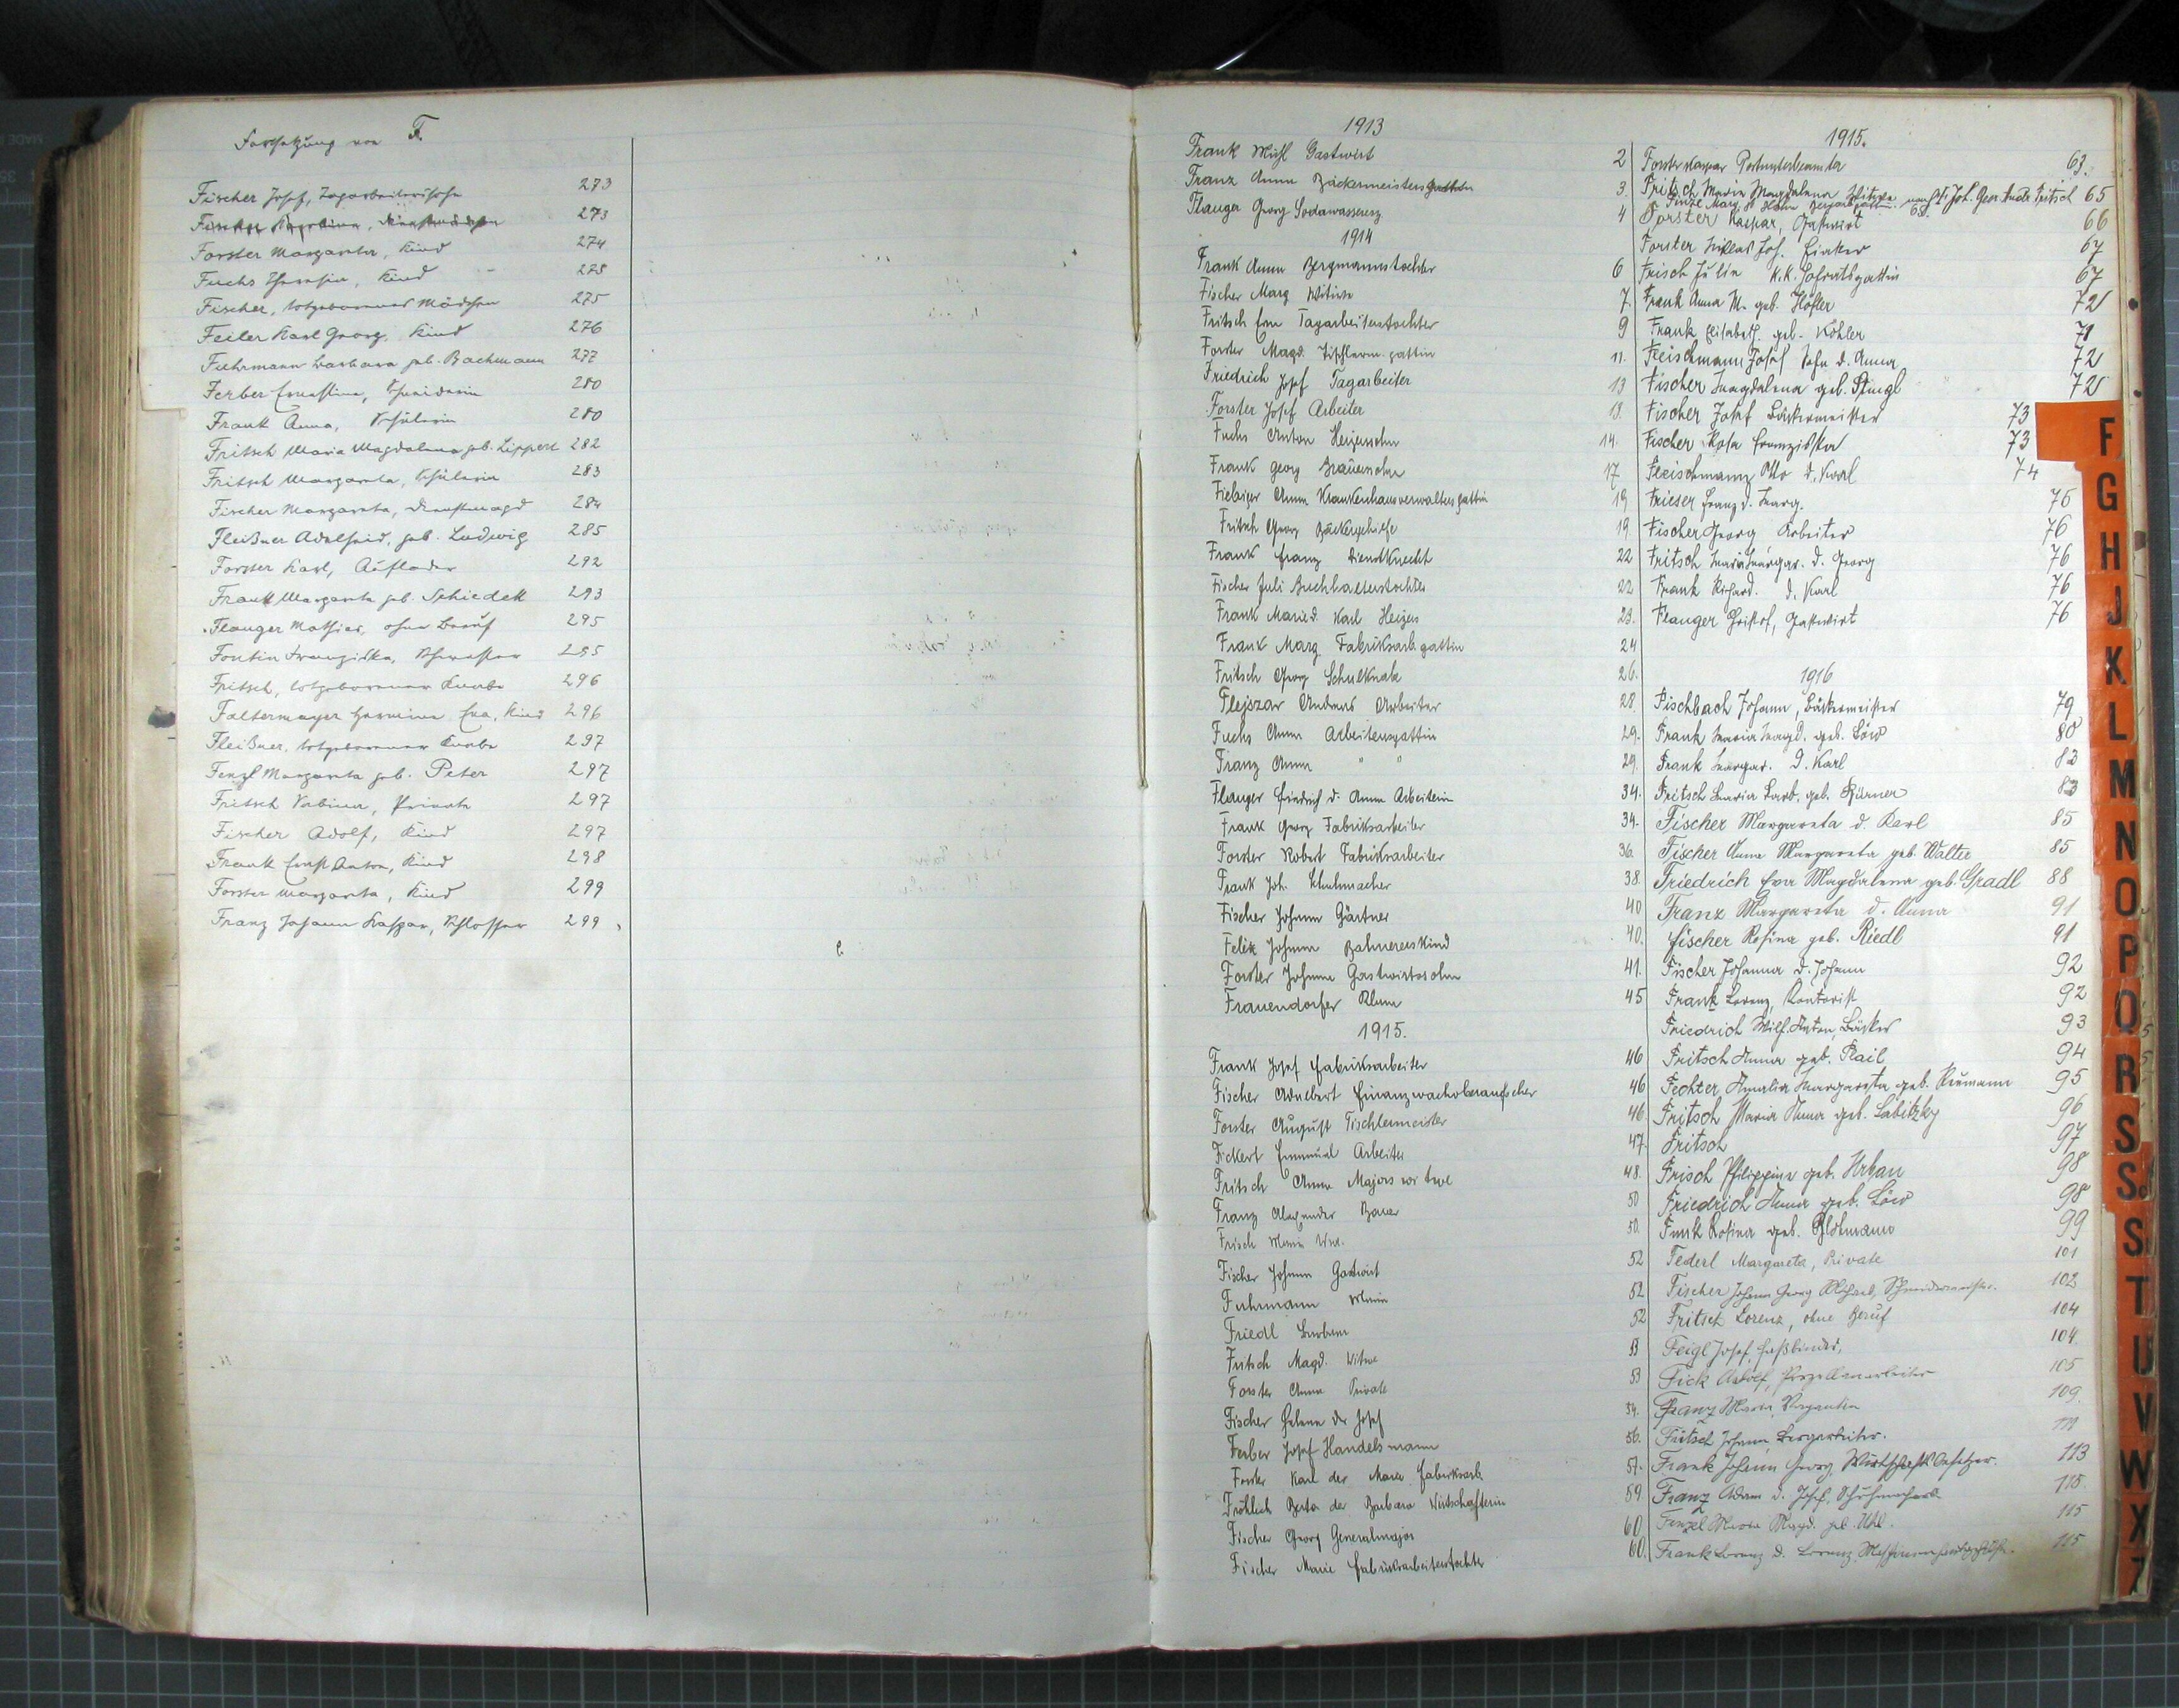 Fortsetzung von F.
Fischer Josef, Tagarbeiterssohn 273
Fischer Karolina, Dienstmädchen 273
Forster Margareta, Kind 274
Fuchs Theresia, Kind 275
Fischer, totgeborenes Mädchen 275
Feiler Karl Georg, Kind 276
Fuhrmann Barbara geb. Bachmann 277
Ferber Ernestine, Schneiderin 280
Frank Anna, Schülerin 280
Fritsch Maria Magdalena geb. Lippert 282
Fritsch Margareta, Schülerin 283
Fischer Margareta, Dienstmagd 284
Fleißner Adelheid, geb. Ludwig 285
Forster Karl, Auflader 292
Frank Margareta geb. Schiedek 293
Flauger Mathias, ohne Beruf 295
Fontin Franziska, Schwester 295
Fritsch, totgeborener Knabe 296
Faltermayer Hermine Eva, Kind 296
Fleißner, totgeborener Knabe 297
Fenzl Margareta geb. Peter 297
Fritsch Sabina, Private 297
Fischer Adolf, Kind 297
Frank Ernst Anton, Kind 298
Forster Margareta, Kind 299
Franz Johann Kaspar, Schlosser 299
1913
Frank Michl Gastwirt 2
Franz Anna Bäckermeistersgattin 3.
Flauger Georg Sodawassererz. 4
1914
Frank Anna Bergmannstochter 6
Fischer Marg Witwe 7.
Fritsch Erna Tagarbeiterstochter 9
Forster Magd. Tischlerm. gattin 11.
Friedrich Josef Tagarbeiter 13
Forster Josef Arbeiter 13.
Fuchs Anton Heizersohn 14.
Frank Georg Brauersohn 17
Fiebiger Anna Krankenhausverwaltersgattin 19
Fritsch Georg Bäckergehilfe 19
Frank Franz Dienstknecht 22
Fischer Juli Buchhalterstochter 22
Frank Marie d. Karl Heizers 23.
Frank Marg Fabriksarb. gattin 24
Fritsch Georg Schulknabe 26.
Flejszar Andreas Arbeiter 28.
Fuchs Anna Arbeitersgattin 29.
Franz Anna " " 29.
Flauger Friedrich d. Anna Arbeiterin 34.
Frank Georg Fabriksarbeiter 34.
Forster Robert Fabriksarbeiter 36.
Frank Joh. Schuhmacher 38.
Fischer Johann Gärtner 40
Felix Johann Bahnererskind 40.
Forster Johann Gastwirtssohn 41.
Frauendorfer Klara 45
1915.
Frank Josef Fabriksarbeiter 46
Fischer Adalbert Finanzwachoberaufseher 46
Forster August Tischlermeister 46
Fickert Emanuel Arbeiter 47.
Fritsch Anna Majorswitwe 48.
Franz Alexander Bauer 50
Frisch Maria Wwe. 50.
Fischer Johann Gastwirt 52
Fuhrmann Maria 52
Friedl Barbara 52
Fritsch Magd. Witwe 53
Forster Anna Private 53
Fischer Helena der Josef 54.
Ferber Josef Handelsmann 56.
Forster Karl der Marie Fabriksarb. 57.
Fröhlich Berta der Barbara Wirtschafterin 59
Fischer Georg Generalmajor 60
Fischer Marie Fabriksarbeiterstochter 60.
1915.
Forster Kaspar Postunterbeamter 63.
Fritsch Maria Magdalena Witwe nach d. Joh. Geor. Andr. Fritsch 65
Forster Kaspar, Gastwirt 66
Forster Niklas Joh. Fiaker 67
Frisch Julie K.K. Hofratsgattin 67
Frank Anna M. geb. Höfler 72
Frank Elisabeth geb. Köhler 71
Fleischmann Josef Sohn d. Anna 72
Fischer Magdalena geb. Stingl 72
Fischer Josef Bäckermeister 73
Fischer Rosa Franziska 73
Fleischmann Otto d. Karl 74
Frieser Franz d. Marg. 76
Fischer Georg Arbeiter 76
Fritsch Maria Margar. d. Georg 76
Frank Richard. d. Karl 76
Flauger Christof, Gastwirt 76
1916
Fischbach Johann, Bäckermeister 79
Frank Maria Magd. geb. Löw 80
Frank Margar. d. Karl 83
Fritsch Maria Barb. geb. Körner 83
Fischer Margareta d. Karl 85
Fischer Anna Margareta geb. Walter 85
Friedrich Eva Magdalena geb. Gradl 88
Franz Margareta d. Anna 91
Fischer Rosina geb. Riedl 91
Fischer Johanna d. Johann 92
Frank Lorenz, Kontorist 92
Friedrich Wilh. Anton, Bäcker 93
Fritsch Anna geb. Rail 94
Fechter Amalia Margareta geb. Neumann 95
Fritsch Maria Anna geb. Labitzky 96
Fritsch 97
Frisch Philippine geb. Urban 98
Friedrich Anna geb. Löw 98
Funk Rosina geb. 99
Federl Margareta, Private 101
Fischer Johann Georg Michael, Schneidermeister. 102
Fritsch Lorenz, ohne Beruf 104
Feigl Josef, Faßbinder, 104.
Fick Adolf, Porzellanarbeiter 105
Franz Maria, 109.
Fritsch Johann Bergarbeiter. 111
Frank Johann Georg, Wirtschaftsbesitzer. 113
Franz Adam d. Josef, Schuhmacher 115.
Fenzel Maria Magd. geb. Uhl. 115
Frank Lorenz d. Lorenz 115
F
G
H
J
K
L
M
N
O
P
Q
R
S
S
S
T
U
V
W
X
Z